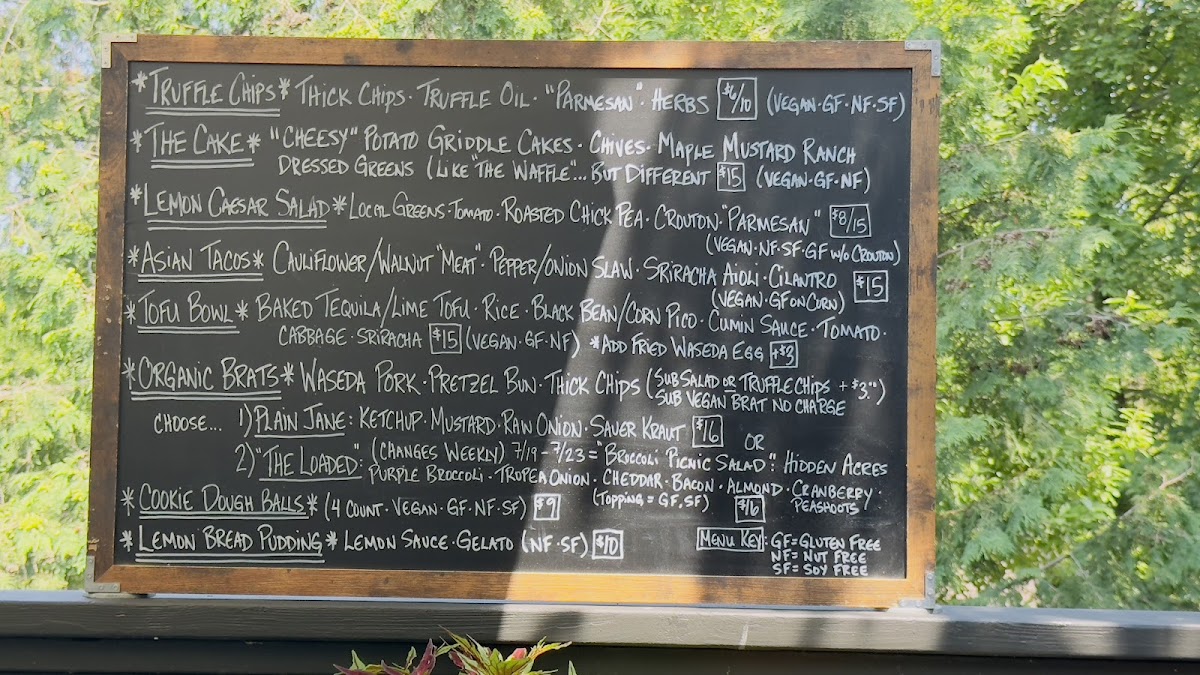 *TRUFFLE CHIPS* THICK CHIPS · TRUFFLE OIL · "PARMESAN" · HERBS $6/10 (VEGAN·GF·NF·SF)
*THE CAKE* "CHEESY" POTATO GRIDDLE CAKES · CHIVES · MAPLE MUSTARD RANCH
DRESSED GREENS (LIKE "THE WAFFLE"... BUT DIFFERENT $15 (VEGAN·GF·NF)
*LEMON CAESAR SALAD* LOCAL GREENS · TOMATO · ROASTED CHICK PEA · CROUTON · "PARMESAN" $8/15
(VEGAN·NF·SF·GF W/O CROUTON)
*ASIAN TACOS* CAULIFLOWER/WALNUT "MEAT" · PEPPER/ONION SLAW · SRIRACHA AIOLI · CILANTRO $15
(VEGAN·GF ON CORN)
*TOFU BOWL* BAKED TEQUILA/LIME TOFU · RICE · BLACK BEAN/CORN PICO · CUMIN SAUCE · TOMATO ·
CABBAGE · SRIRACHA $15 (VEGAN·GF·NF) *ADD FRIED WASEDA EGG +$3
*ORGANIC BRATS* WASEDA PORK · PRETZEL BUN · THICK CHIPS (SUB SALAD OR TRUFFLE CHIPS + $3.00)
SUB VEGAN BRAT NO CHARGE
CHOOSE... 1) PLAIN JANE: KETCHUP · MUSTARD · RAW ONION · SAUER KRAUT $16 OR
2) "THE LOADED": (CHANGES WEEKLY) 7/19 - 7/23 = "BROCCOLI PICNIC SALAD": HIDDEN ACRES
PURPLE BROCCOLI · TROPEA ONION · CHEDDAR · BACON · ALMOND · CRANBERRY ·
PEASHOOTS
(TOPPING = GF, SF) $16
*COOKIE DOUGH BALLS* (4 COUNT · VEGAN · GF · NF · SF) $9
*LEMON BREAD PUDDING* LEMON SAUCE · GELATO (NF·SF) $10
MENU KEY: GF = GLUTEN FREE
NF = NUT FREE
SF = SOY FREE